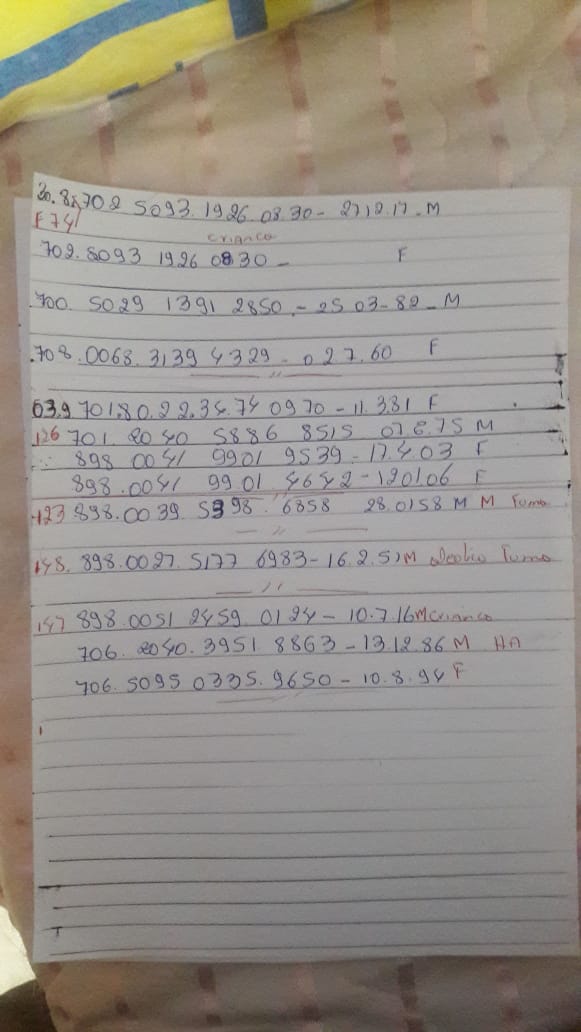 30.8 702 5093.1926.08.30 - 2712.17 - M
F 74
crianca
702.5093 1926 0830 - F
.700. 5029 1391 2850 - 25 03-82 - M
.708.0068.3139 4329 - 027.60 F
03.9 701.80.22.34.74 0970 - 11.381 F
126 701.2040 5886 8515 07.8.75 M
898 0041 9901 9539 - 17.4.03 F
898.0041 9901 4642 - 120106 F
123 898.0039. 5398. 6858 28.0158 M M Fuma
148. 898.0027. 5177 6983 - 16.2.51 M Fuma
147 898.0051 2459 0124 - 10.7.16 M crianca
706. 2040.3951.8863 - 1312.86 M HA
706.5095 0335.9650 - 10.8.94 F